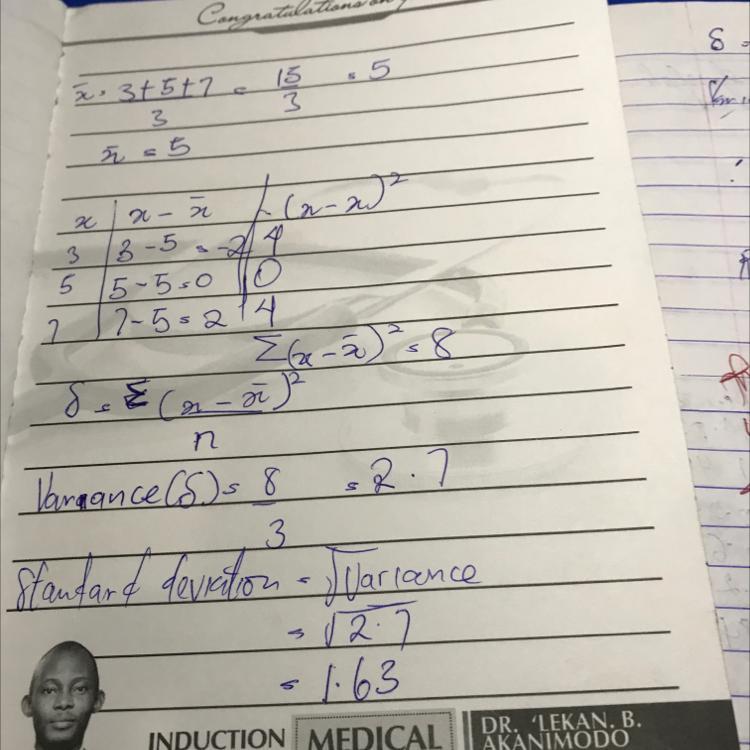 Congratulations on
x̄ = 3+5+7 = 15 = 5
3 3
x̄ = 5
x x - x̄ (x-x)²
3 3-5 = -2 4
5 5-5=0 0
7 7-5=2 4
Σ(x-x̄)² = 8
δ = Σ(x-x̄)²
n
Variance(δ) = 8 = 2.7
3
Standard deviation = √Variance
= √2.7
= 1.63
INDUCTION MEDICAL DR. 'LEKAN. B.
AKANIMODO